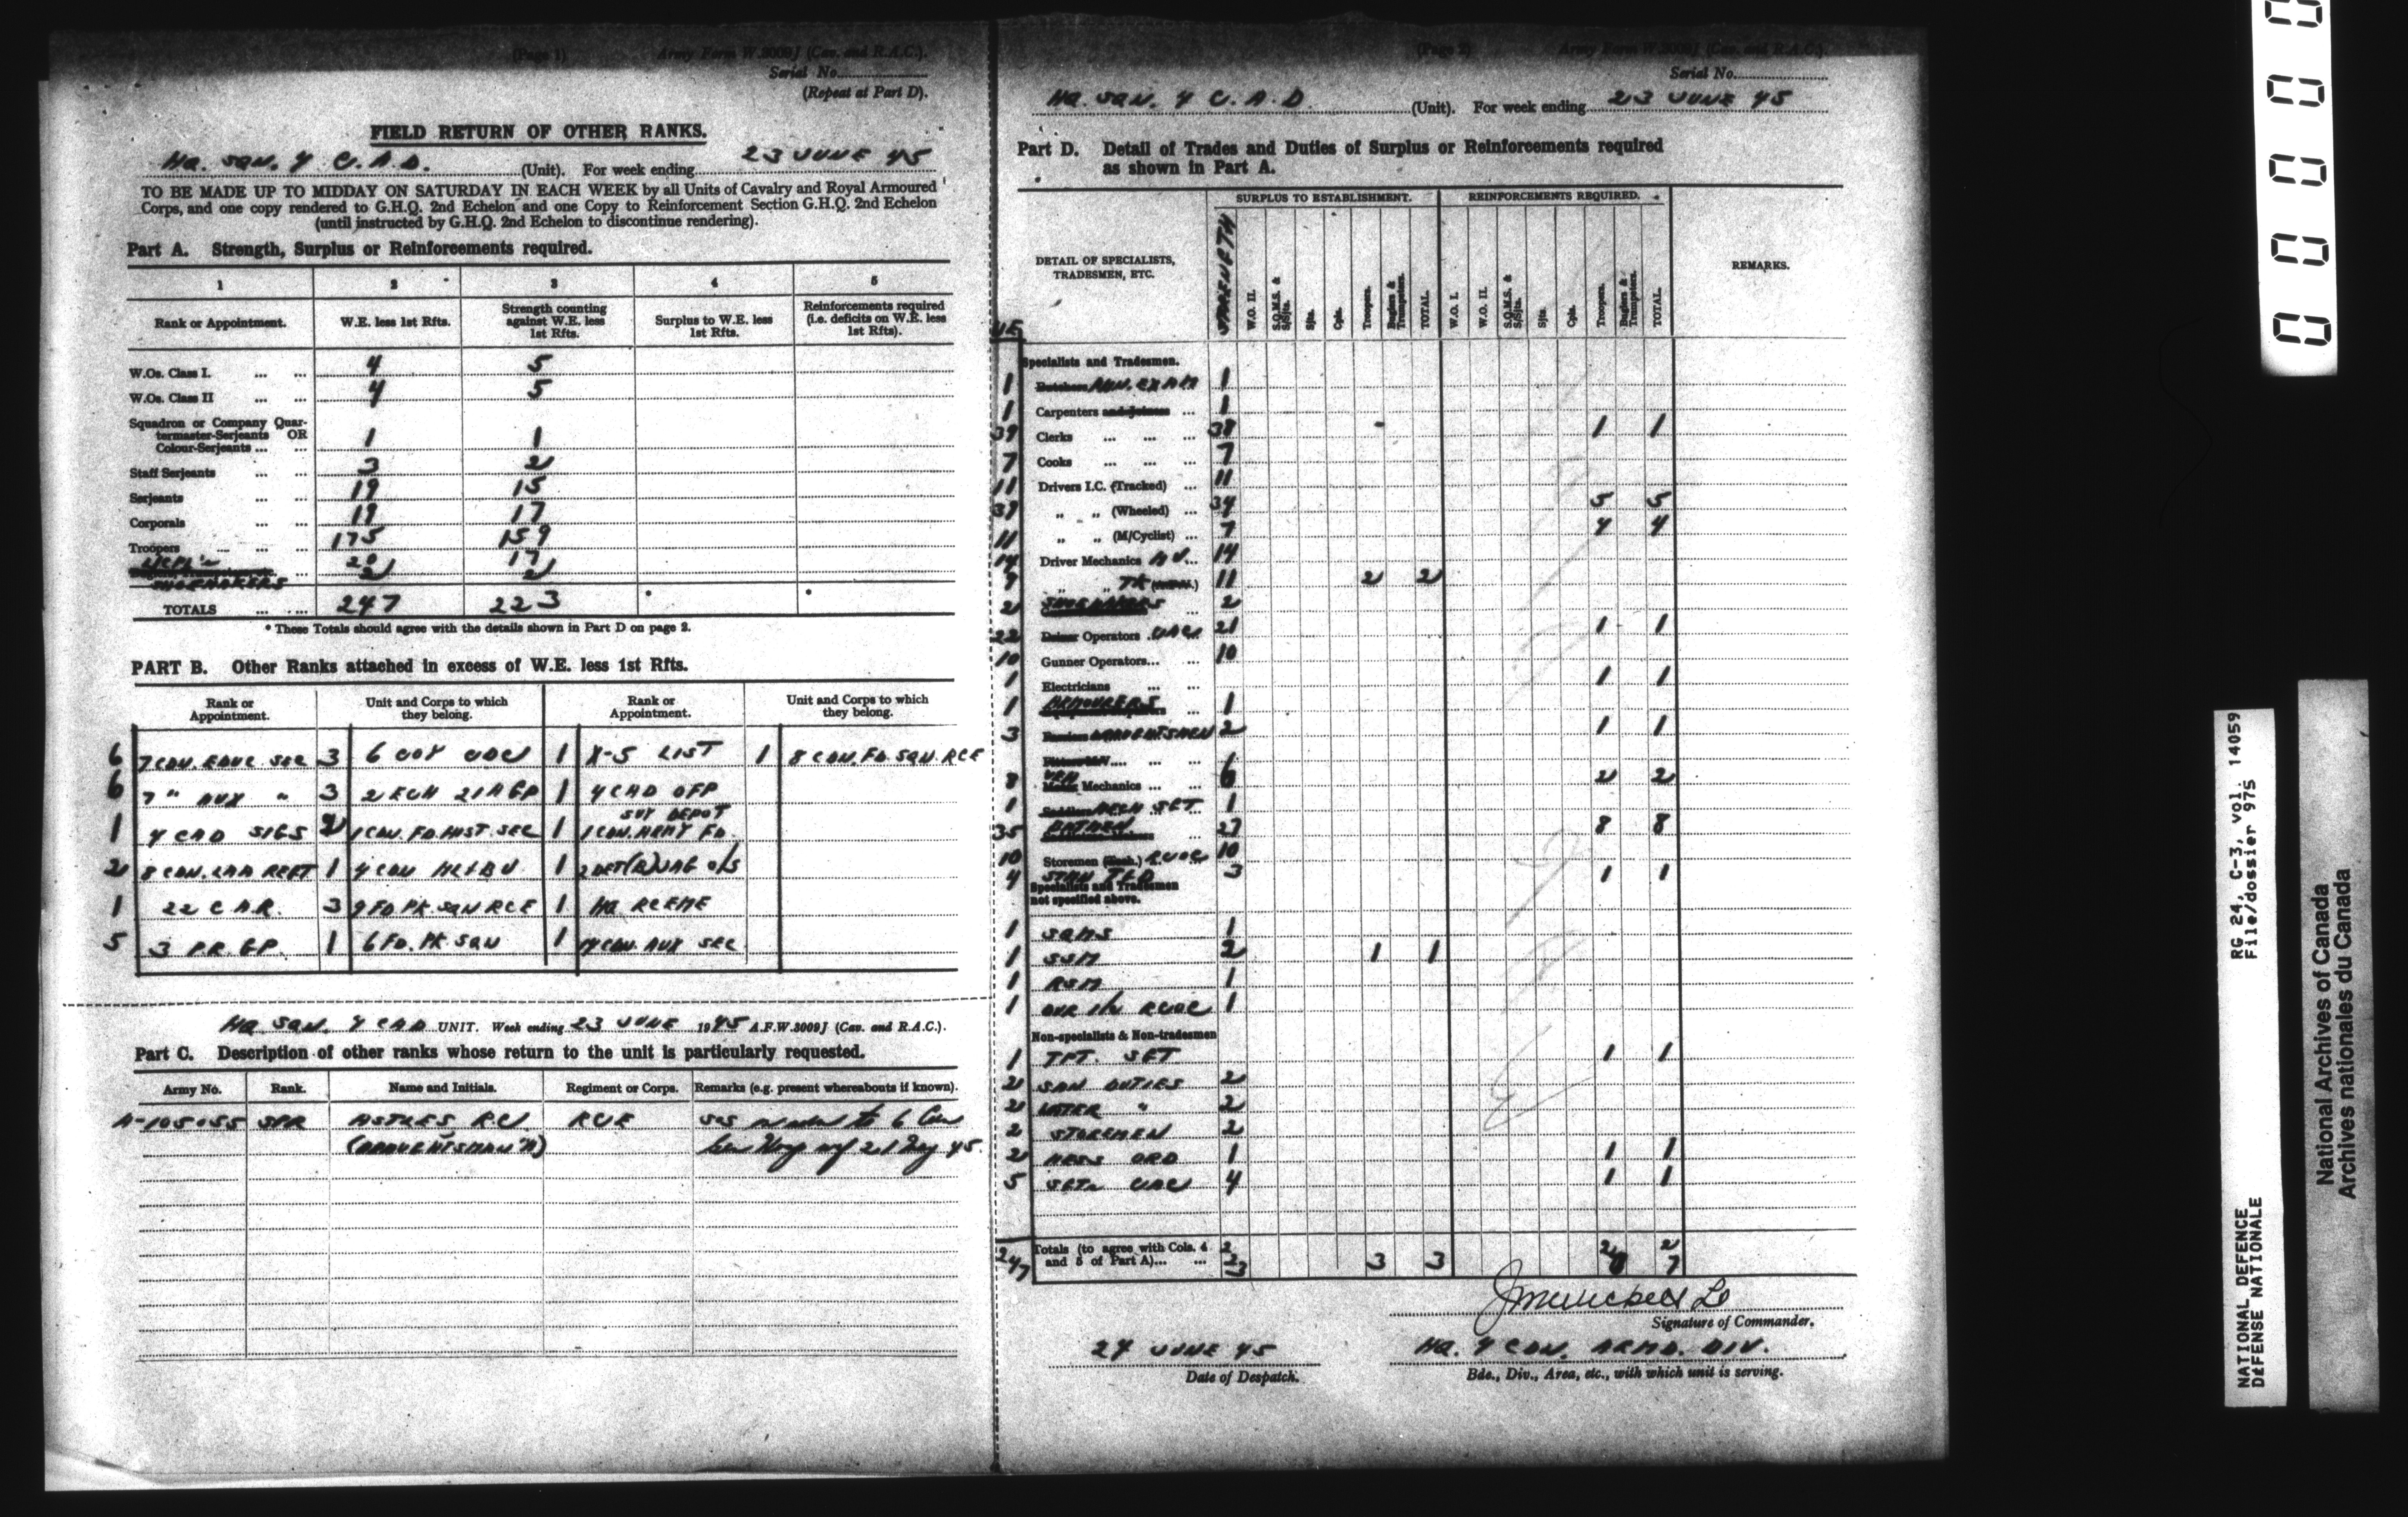 (Page 1) Army Form W.3009J (Cav. and R.A.C.).
Serial No.
(Repeat at Part D).
FIELD RETURN OF OTHER RANKS.
HQ. SQN. 4 C.A.D. (Unit). For week ending 23 JUNE 45
TO BE MADE UP TO MIDDAY ON SATURDAY IN EACH WEEK by all Units of Cavalry and Royal Armoured
Corps, and one copy rendered to G.H.Q. 2nd Echelon and one Copy to Reinforcement Section G.H.Q. 2nd Echelon
(until instructed by G.H.Q. 2nd Echelon to discontinue rendering).
Part A. Strength, Surplus or Reinforcements required.
1 2 3 4 5
Rank or Appointment. W.E. less 1st Rfts. Strength counting against W.E. less 1st Rfts. Surplus to W.E. less 1st Rfts. Reinforcements required (i.e. deficits on W.E. less 1st Rfts).
W.Os. Class I. ... ... 4 5
W.Os. Class II ... ... 4 5
Squadron or Company Quar-
termaster-Serjeants OR
Colour-Serjeants ... ... 1 1
Staff Serjeants ... ... 3 2
Serjeants ... ... 19 15
Corporals ... ... 19 17
Troopers ... ... ... 175 159
L/CPL's 20 17
SHOEMAKERS 2 2
TOTALS ... ... 247 223
* These Totals should agree with the details shown in Part D on page 2.
PART B. Other Ranks attached in excess of W.E. less 1st Rfts.
Rank or Appointment. Unit and Corps to which they belong. Rank or Appointment. Unit and Corps to which they belong.
6 7 CDN. EDUC SEC 3 6 COY CDC 1 X-5 LIST 1 8 CDN. FD. SQN. RCE
6 7 " AUX " 3 2 ECH 21 AGP 1 4 CAD OFP
1 4 CAD SIGS 2 1 CDN. FD. HIST. SEC 1 1 CDN. ARMY FD. SUY DEPOT
2 8 CDN. LAD 1 4 CDN 1 2 DET(R) JAG O/S
1 22 C.A.R. 3 9 FD. PK. SQN RCE 1 HQ RCEME
5 3 P.R. GP. 1 6 FD. PK SQN 1 CDN. AUX SEC
HQ SQN. 4 CAD UNIT. Week ending 23 JUNE 1945 A.F.W.3009J (Cav. and R.A.C.).
Part C. Description of other ranks whose return to the unit is particularly requested.
Army No. Rank. Name and Initials. Regiment or Corps. Remarks (e.g. present whereabouts if known).
A-105055 SPR ASTLES, RC. RCE SOS to 6 Cdn
(DRAUGHTSMAN "A") Gen Hosp wef 21 May 45.
(Page 2) Army Form W.3009J (Cav. and R.A.C.).
Serial No.
HQ. SQN. 4 C.A.D. (Unit). For week ending 23 JUNE 45
Part D. Detail of Trades and Duties of Surplus or Reinforcements required
as shown in Part A.
SURPLUS TO ESTABLISHMENT. REINFORCEMENTS REQUIRED.
DETAIL OF SPECIALISTS, TRADESMEN, ETC. STRENGTH W.O. II. S.Q.M.S. & S/Sjts. Sjts. Cpls. Troopers. Buglers & Trumpeters. TOTAL. W.O. I. W.O. II. S.Q.M.S. & S/Sjts. Sjts. Cpls. Troopers. Buglers & Trumpeters. TOTAL. REMARKS.
Specialists and Tradesmen.
1 Butchers EXAM 1
1 Carpenters and Joiners ... 1
39 Clerks ... ... ... 38 1 1
7 Cooks ... ... ... 7
11 Drivers I.C. (Tracked) ... 11
39 " " (Wheeled) ... 34 5 5
11 " " (M/Cyclist) ... 7 4 4
14 Driver Mechanics AV... 14
9 " " TK 11 2 2
2 SHOEMAKERS ... 2
22 Operators CAC 21 1 1
10 Gunner Operators... ... 10
1 Electricians ... ... 1 1
1 ARMOURERS ... 1
3 DRAUGHTSMEN 2 1 1
8 VEH Mechanics ... ... 6 2 2
1 Saddlers MECH SJT 1
35 BATMEN 27 8 8
10 Storemen (Tech.) RCOC 10
4 3 1 1
Specialists and Tradesmen
not specified above.
1 SQMS 1
1 SSM 2 1 1
1 RSM 1
1 RCOC 1
Non-specialists & Non-tradesmen
1 TPT. SJT 1 1
2 SAN DUTIES 2
2 WATER " 2
2 STOREMEN 2
2 MESS ORD 1 1 1
5 SJTs CAC 4 1 1
247 Totals (to agree with Cols. 4 and 5 of Part A)... ... 223 3 3 27 27
Signature of Commander.
24 JUNE 45 HQ. 4 CDN. ARMD. DIV.
Date of Despatch. Bde., Div., Area, etc., with which unit is serving.
0 0 0 0 0
RG 24, C-3, vol. 14059
File/dossier 975
NATIONAL DEFENCE
DÉFENSE NATIONALE
National Archives of Canada
Archives nationales du Canada